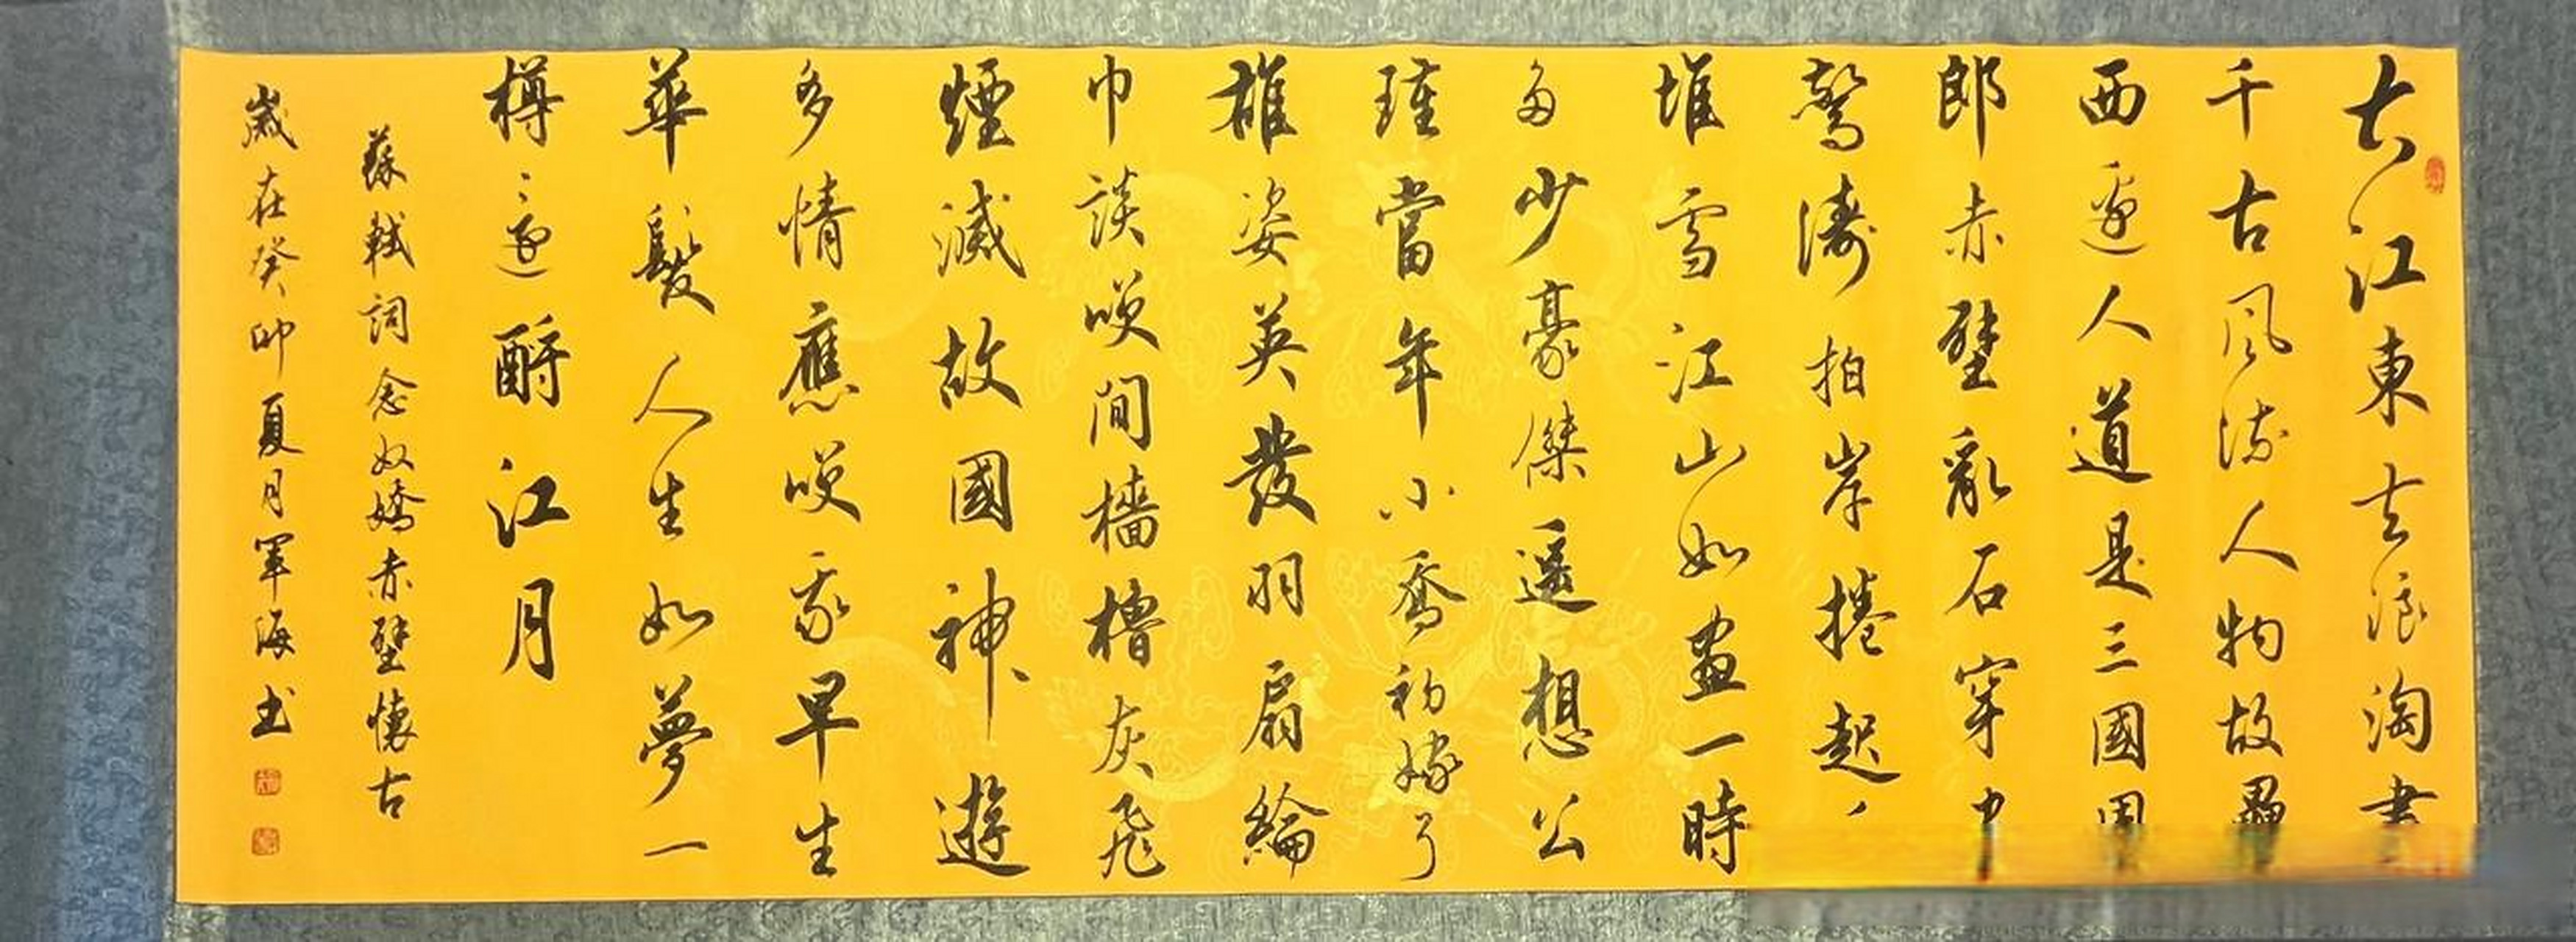 大江東去浪淘盡
千古風流人物故壘
西邊人道是三國周
郎赤壁亂石穿
驚濤拍岸捲起
堆雪江山如畫一時
多少豪傑遙想公
瑾當年小喬初嫁了
雄姿英發羽扇綸
巾談咲間檣櫓灰飛
煙滅故國神遊
多情應咲我早生
華髮人生如夢一
樽還酹江月
蘇軾詞念奴嬌赤壁懷古
歲在癸卯夏月軍海書